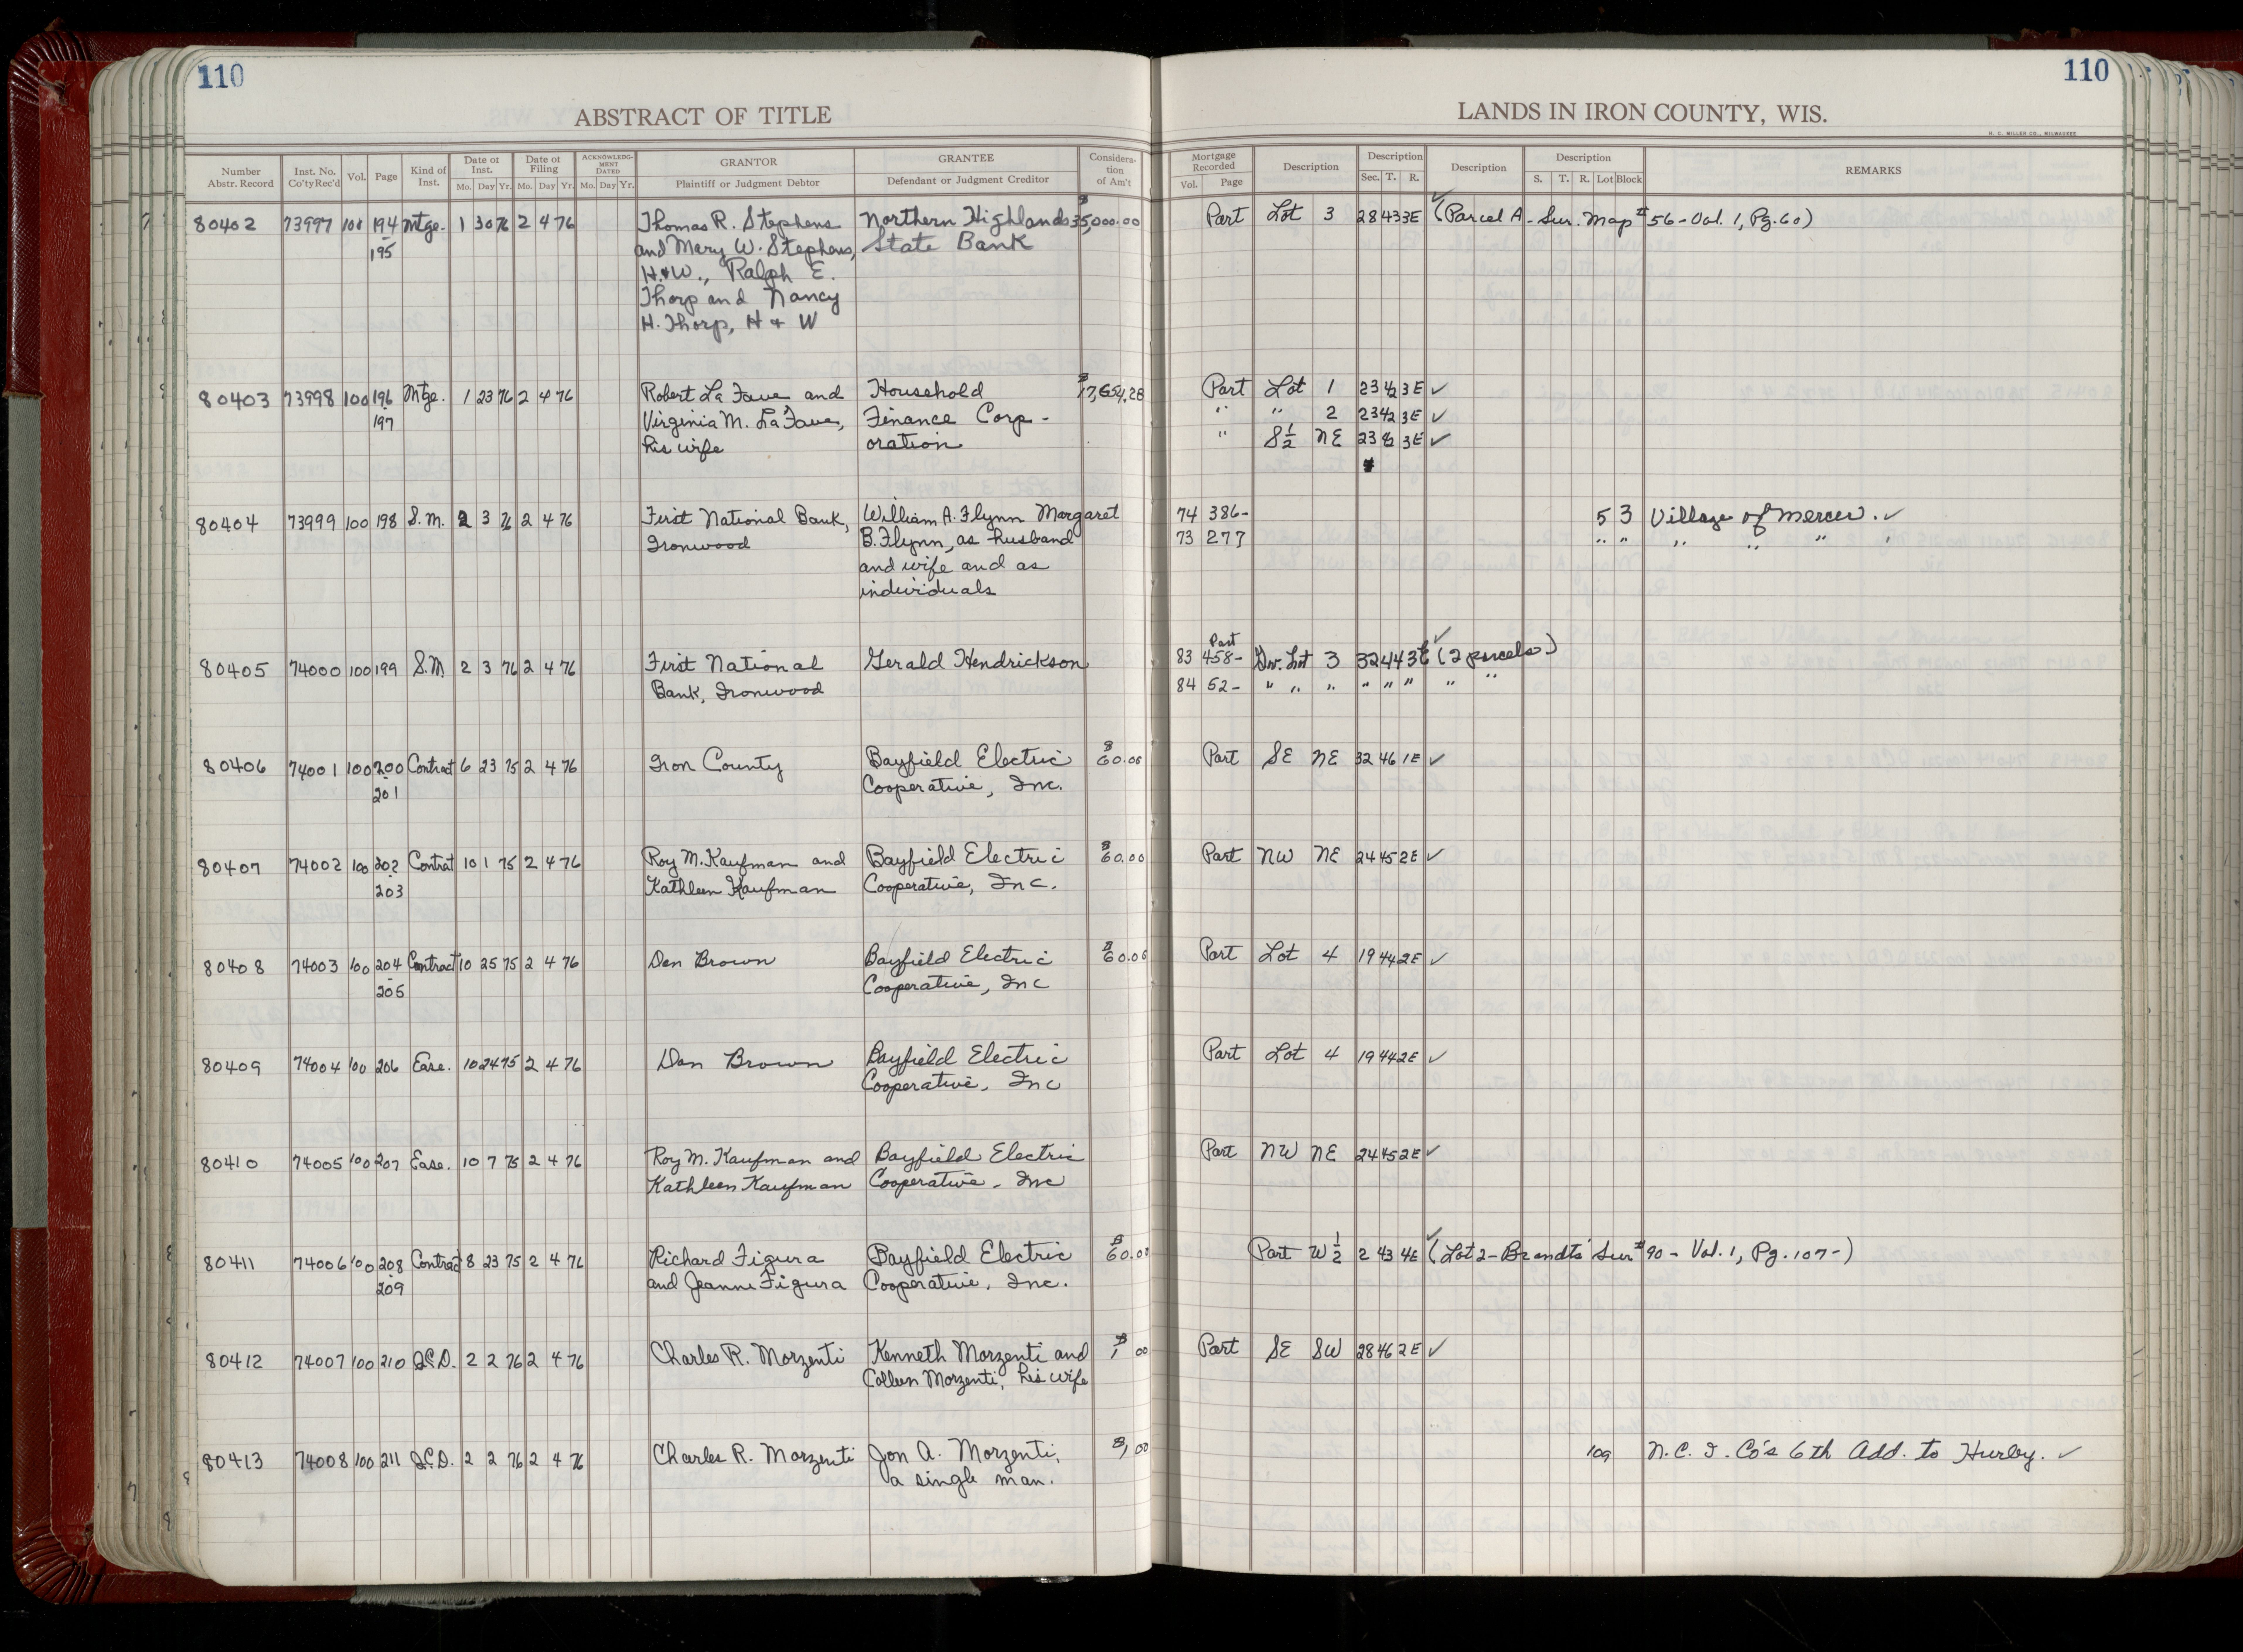 110
110
ABSTRACT OF TITLE
LANDS IN IRON COUNTY, WIS.
H. C. MILLER CO., MILWAUKEE
Number Abstr. Record Inst. No. Co'ty Rec'd Vol. Page Kind of Inst. Date of Inst. Mo. Day Yr. Date of Filing Mo. Day Yr. ACKNOWLEDGMENT DATED Mo. Day Yr. GRANTOR Plaintiff or Judgment Debtor GRANTEE Defendant or Judgment Creditor Consideration of Am't Mortgage Recorded Vol. Page Description Description Sec. T. R. Description Description S. T. R. Lot Block REMARKS
80402 73997 100 194 Mtge. 1 30 76 2 4 76 Thomas R. Stephens Northern Highlands $35,000.00 Part Lot 3 28 43 3E ✓ (Parcel A - Sur. Map # 56 - Vol. 1, Pg. 60)
195 and Mary W. Stephens, State Bank
H. & W., Ralph E.
Thorp and Nancy
H. Thorp, H & W
80403 73998 100 196 Mtge. 1 23 76 2 4 76 Robert La Fave and Household $17,654.28 Part Lot 1 23 42 3E ✓
197 Virginia M. La Fave, Finance Corp- " " 2 23 42 3E ✓
his wife oration " S½ NE 23 42 3E ✓
80404 73999 100 198 S.M. 2 3 76 2 4 76 First National Bank, William A. Flynn Margaret 74 386- 5 3 Village of Mercer. ✓
Ironwood B. Flynn, as husband 73 277 " " " " "
and wife and as
individuals
Part
80405 74000 100 199 S.M. 2 3 76 2 4 76 First National Gerald Hendrickson 83 458- Gov. Lot 3 32 44 3E ✓ (2 parcels)
Bank, Ironwood 84 52- " " " " " " " "
80406 74001 100 200 Contract 6 23 75 2 4 76 Iron County Bayfield Electric $60.00 Part SE NE 32 46 1E ✓
201 Cooperative, Inc.
80407 74002 100 202 Contrat 10 1 75 2 4 76 Roy M. Kaufman and Bayfield Electric $60.00 Part NW NE 24 45 2E ✓
203 Kathleen Kaufman Cooperative, Inc.
80408 74003 100 204 Contract 10 25 75 2 4 76 Dan Brown Bayfield Electric $60.00 Part Lot 4 19 44 2E ✓
205 Cooperative, Inc
80409 74004 100 206 Ease. 10 24 75 2 4 76 Dan Brown Bayfield Electric Part Lot 4 19 44 2E ✓
Cooperative, Inc
80410 74005 100 207 Ease. 10 7 75 2 4 76 Roy M. Kaufman and Bayfield Electric Part NW NE 24 45 2E ✓
Kathleen Kaufman Cooperative, Inc
80411 74006 100 208 Contract 8 23 75 2 4 76 Richard Figura Bayfield Electric $60.00 Part W ½ 2 43 4E ✓ (Lot 2 - Brandts' Sur # 90 - Vol. 1, Pg. 107-)
209 and Jeanne Figura Cooperative, Inc.
80412 74007 100 210 Q.C.D. 2 2 76 2 4 76 Charles R. Morzenti Kenneth Morzenti and $1.00 Part SE SW 28 46 2E ✓
Colleen Morzenti, his wife
80413 74008 100 211 Q.C.D. 2 2 76 2 4 76 Charles R. Morzenti Jon A. Morzenti, $1.00 109 N.C.I. Co's 6th Add. to Hurley. ✓
a single man.